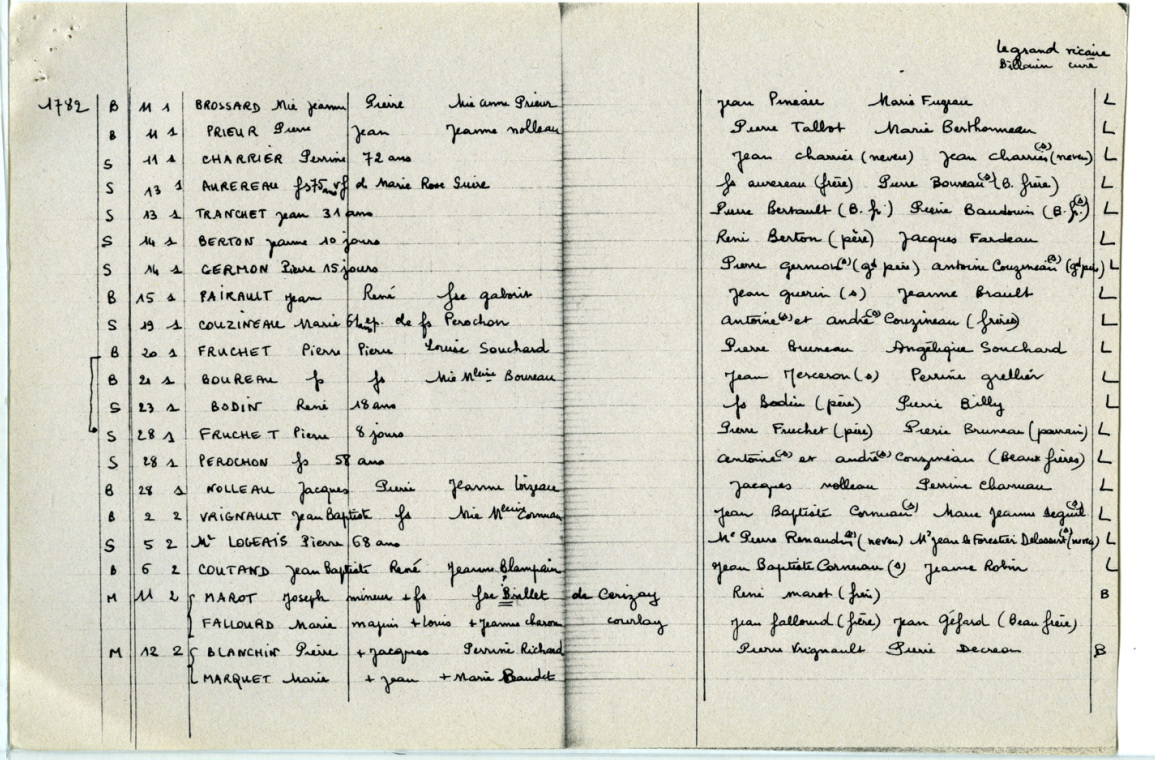 Legrand vicaire
Billouin curé
1782 B 11 1 BROSSARD Mie Jeanne Pierre Mie Anne Prieur Jean Pineau Marie Fuzeau L
B 11 1 PRIEUR Pierre Jean Jeanne Nolleau Pierre Talbot Marie Berthonneau L
S 11 1 CHARRIER Perrine 72 ans Jean Charrier (neveu) Jean Charrier (s) (neveu) L
S 13 1 AUREREAU fs 75 ans vf d Marie Rose Guire fs Aurereau (frère) Pierre Boureau (s) (B. frère) L
S 13 1 TRANCHET Jean 31 ans Pierre Bertault (B. fr.) Pierre Baudouin (B. fr.) (s) L
S 14 1 BERTON Jeanne 10 jours René Berton (père) Jacques Fardeau L
S 14 1 GERMON Pierre 15 jours Pierre Germon (s) (gd père) Antoine Couzineau (s) (gd père) L
B 15 1 PAIRAULT Jean René fse Gaborit Jean Guerin (s) Jeanne Brault L
S 19 1 COUZINEAU Marie 61 ans ep. de fs Perochon Antoine (s) et André (s) Couzineau (frères) L
B 20 1 FRUCHET Pierre Pierre Louise Souchard Pierre Bruneau Angélique Souchard L
B 21 1 BOUREAU fs fs Mie Mleine Boureau Jean Merceron (s) Perrine Grellier L
S 23 1 BODIN René 18 ans fs Bodin (père) Pierre Billy L
S 28 1 FRUCHET Pierre 8 jours Pierre Fruchet (père) Pierre Bruneau (parrain) L
S 28 1 PEROCHON fs 58 ans Antoine (s) et André (s) Couzineau (Beaux frères) L
B 28 1 NOLLEAU Jacques Pierre Jeanne Loizeau Jacques Nolleau Perrine Charuau L
B 2 2 VRIGNAULT Jean Baptiste fs Mie Mleine Cornuau Jean Baptiste Cornuau (s) Marie Jeanne Seguit (s) L
S 5 2 Me LOGEAIS Pierre 68 ans Me Pierre Renaudin (s) (neveu) Mr Jean le Forestier (s) (neveu) L
B 6 2 COUTAND Jean Baptiste René Jeanne Blampain Jean Baptiste Cornuau (s) Jeanne Robin L
M 11 2 MAROT Joseph mineur + fs fse Brillet ? de Cerizay René Marot (frère) B
FALLOURD Marie majeure + Louis + Jeanne Charon Courlay Jean Fallourd (frère) Jean Géfard (Beau frère)
M 12 2 BLANCHIN Pierre + Jacques Perrine Richard Pierre Vrignault Pierre Decreon B
MARQUET Marie + Jean + Marie Baudet